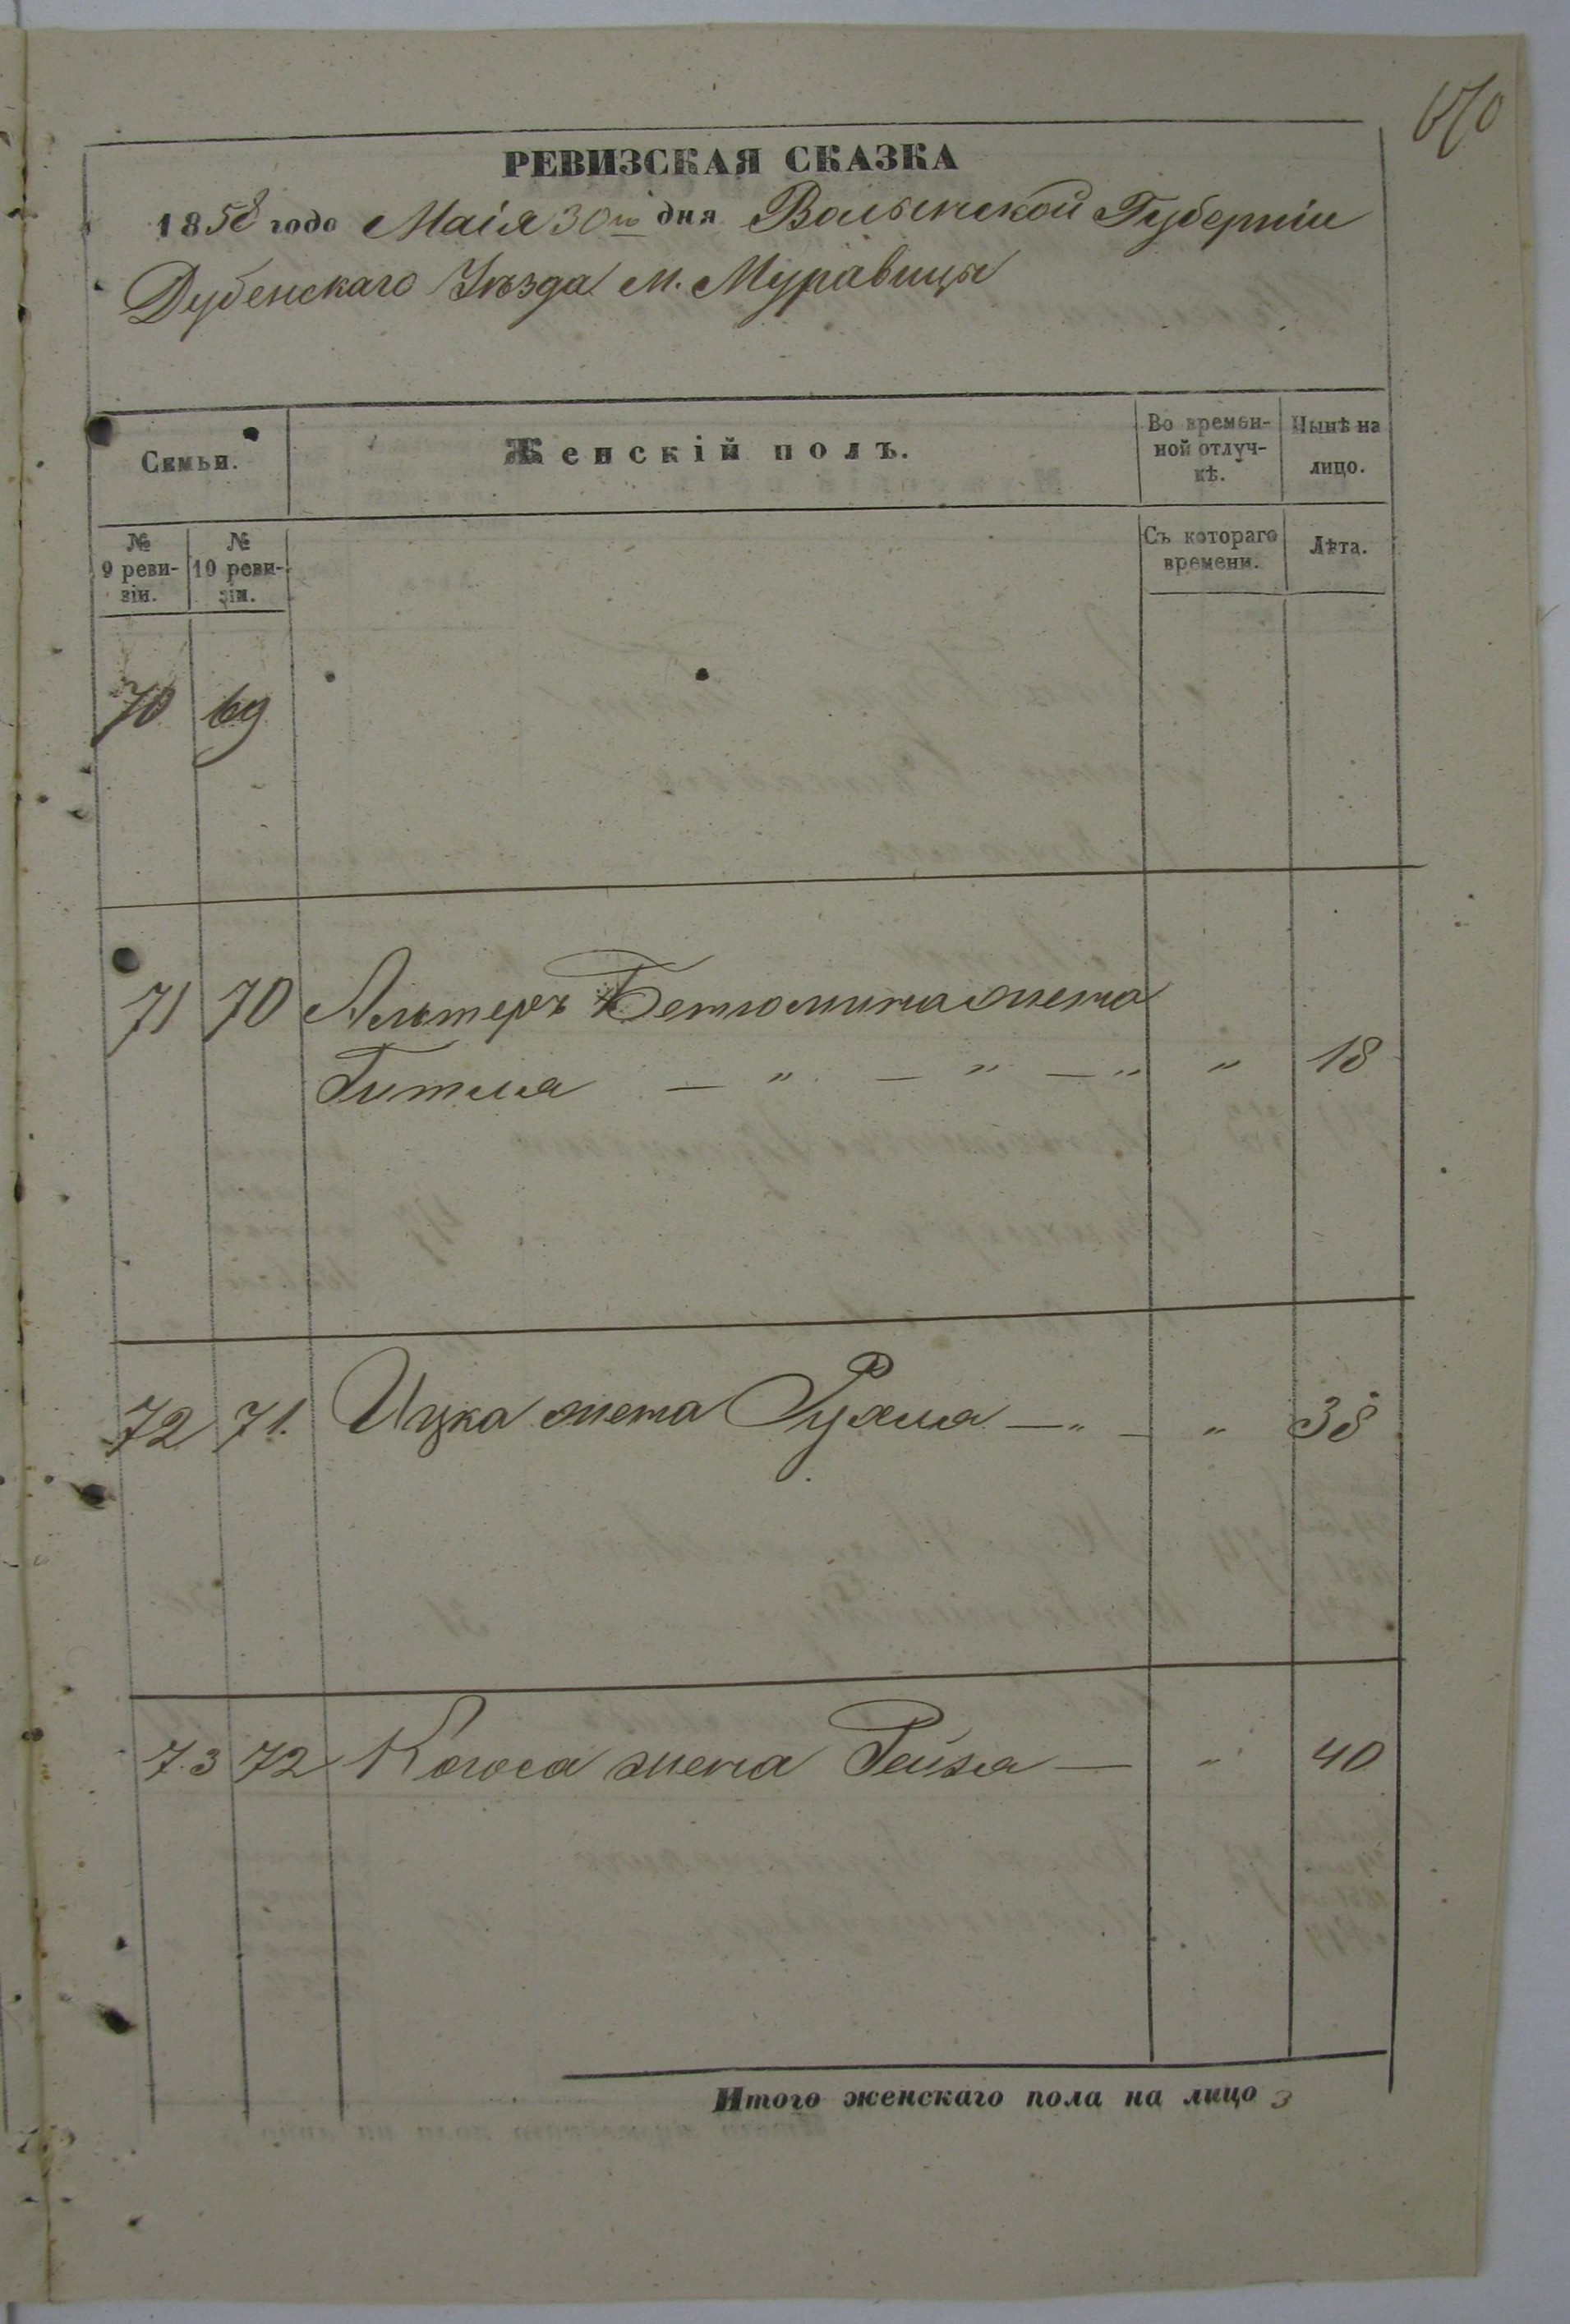 670
РЕВИЗСКАЯ СКАЗКА
1858 года Маія 30го дня Волынской Губерніи
Дубенскаго Уѣзда м. Муравицы
Семьи.
Женскій полъ.
Во времен-
ной отлуч-
кѣ.
Нынѣ на
лицо.
№
9 реви-
зіи.
№
10 реви-
зіи.
Съ котораго
времени.
Лѣта.
70 69
71 70 Альтеръ Бетюмина жена
Гитля — " — " — " " 18
72 71. Ицка жена Рухля — " — " 38
73 72 Когоса жена Рейзя — " 40
Итого женскаго пола на лицо 3